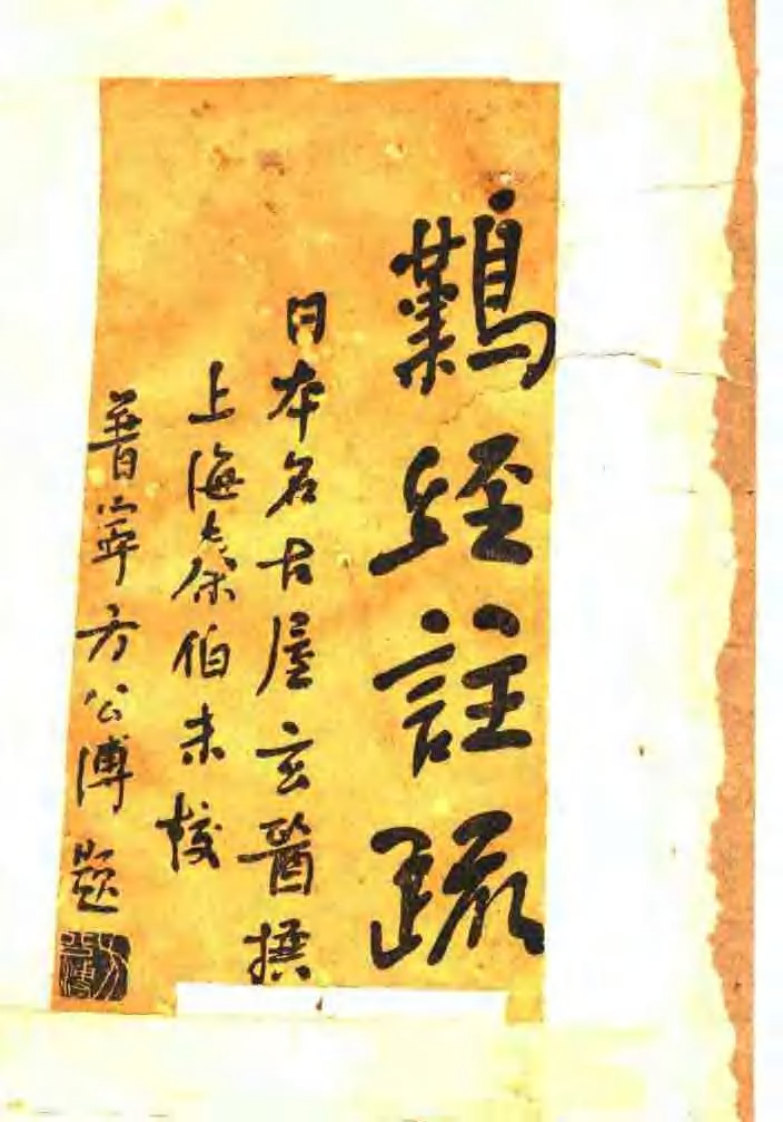 難經註疏
日本名古屋玄醫撰
上海秦伯未校
普寧方公溥題
方公溥